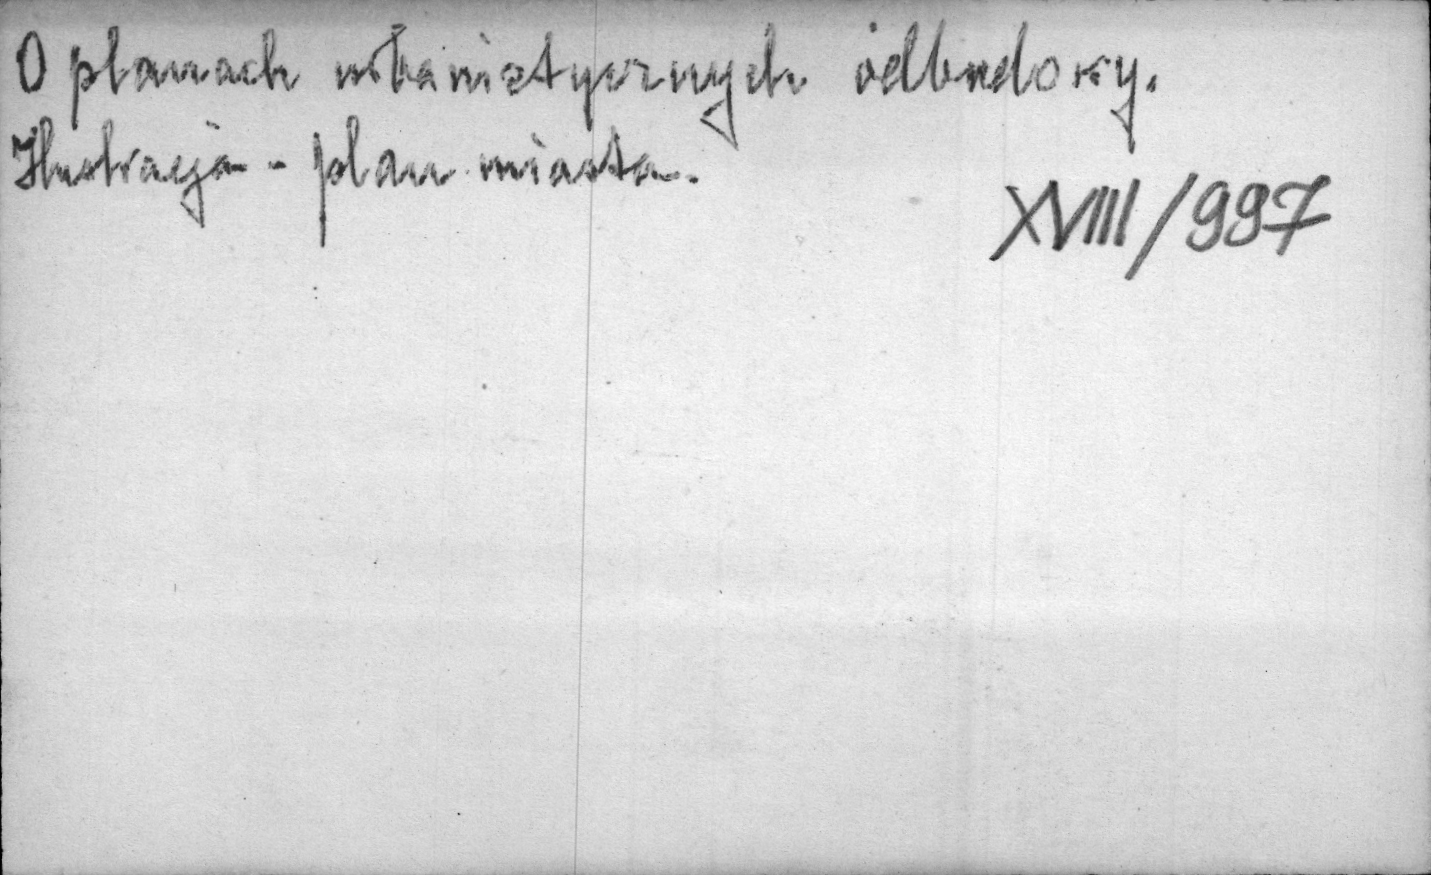 O planach urbanistycznych odbudowy.
Ilustracja - plan miasta.
XVIII/997